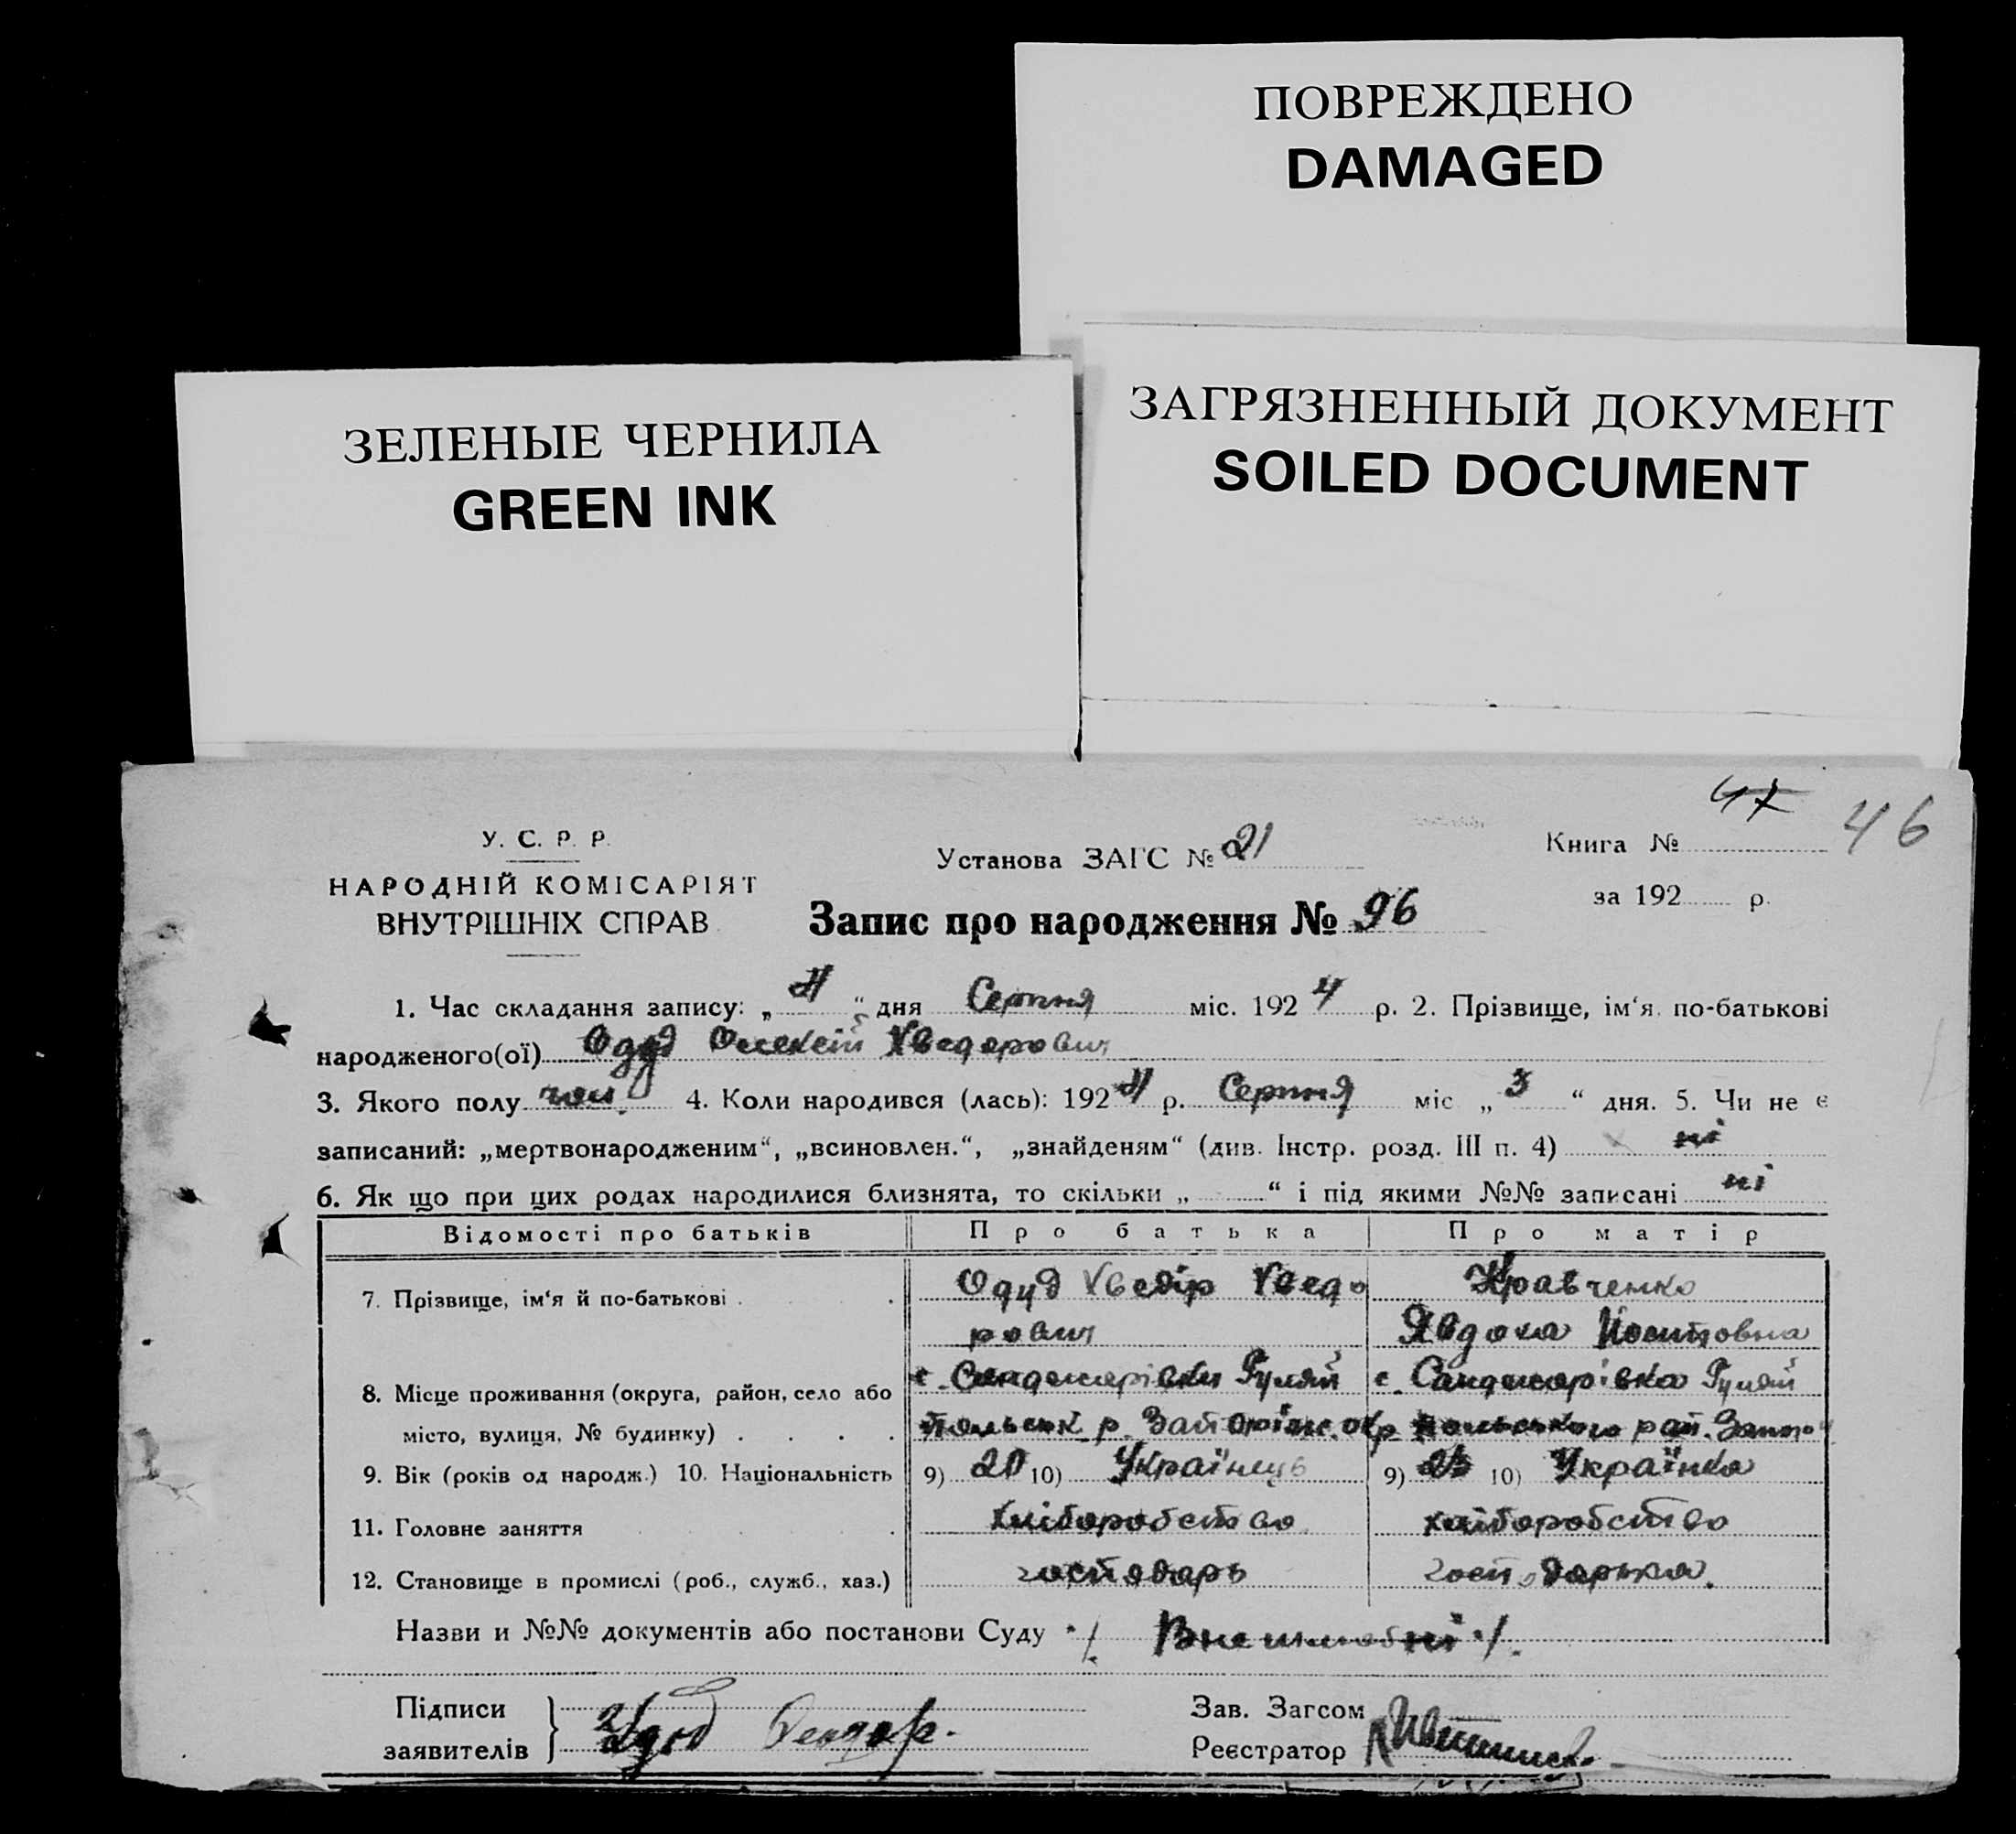 ПОВРЕЖДЕНО
DAMAGED
ЗЕЛЕНЫЕ ЧЕРНИЛА
GREEN INK
ЗАГРЯЗНЕННЫЙ ДОКУМЕНТ
SOILED DOCUMENT
47 46
У. С. Р. Р.
НАРОДНІЙ КОМІСАРІЯТ
ВНУТРІШНІХ СПРАВ
Установа ЗАГС № 21
Книга №
за 192 р.
Запис про народження № 96
1. Час складання запису: „ 4 “ дня Серпня міс. 192 4 р. 2. Прізвище, ім‘я по-батькові
народженого(ої) Одуд Олексій Хведорович
3. Якого полу чол. 4. Коли народився (лась): 192 4 р. Серпня міс „ 3 “ дня. 5. Чи не є
записаний: „мертвонародженим“, „всиновлен.“, „знайденям“ (див. Інстр. розд. III п. 4) ні
6. Як що при цих родах народилися близнята, то скільки „ “ і під якими №№ записані ні
Відомості про батьків Про батька Про матір
7. Прізвище, ім‘я й по-батькові Одуд Хведір Хведо Кравченко
рович Явдоха Йосиповна
8. Місце проживання (округа, район, село або с. Санджарівки Гуляй с. Санджарівка Гуляй
місто, вулиця, № будинку) польськ р. Запоріж. окр польського рай. Запо
9. Вік (років од народж.) 10. Національність 9) 20 10) Українець 9) 10) Українка
11. Головне заняття хліборобство хліборобство
12. Становище в промислі (роб., служб., хаз.) господарь господарька.
Назви и №№ документів або постанови Суду ·/. Внешлюбні ·/.
Підписи
заявителів Удод Феодор.
Зав. Загсом
Реєстратор